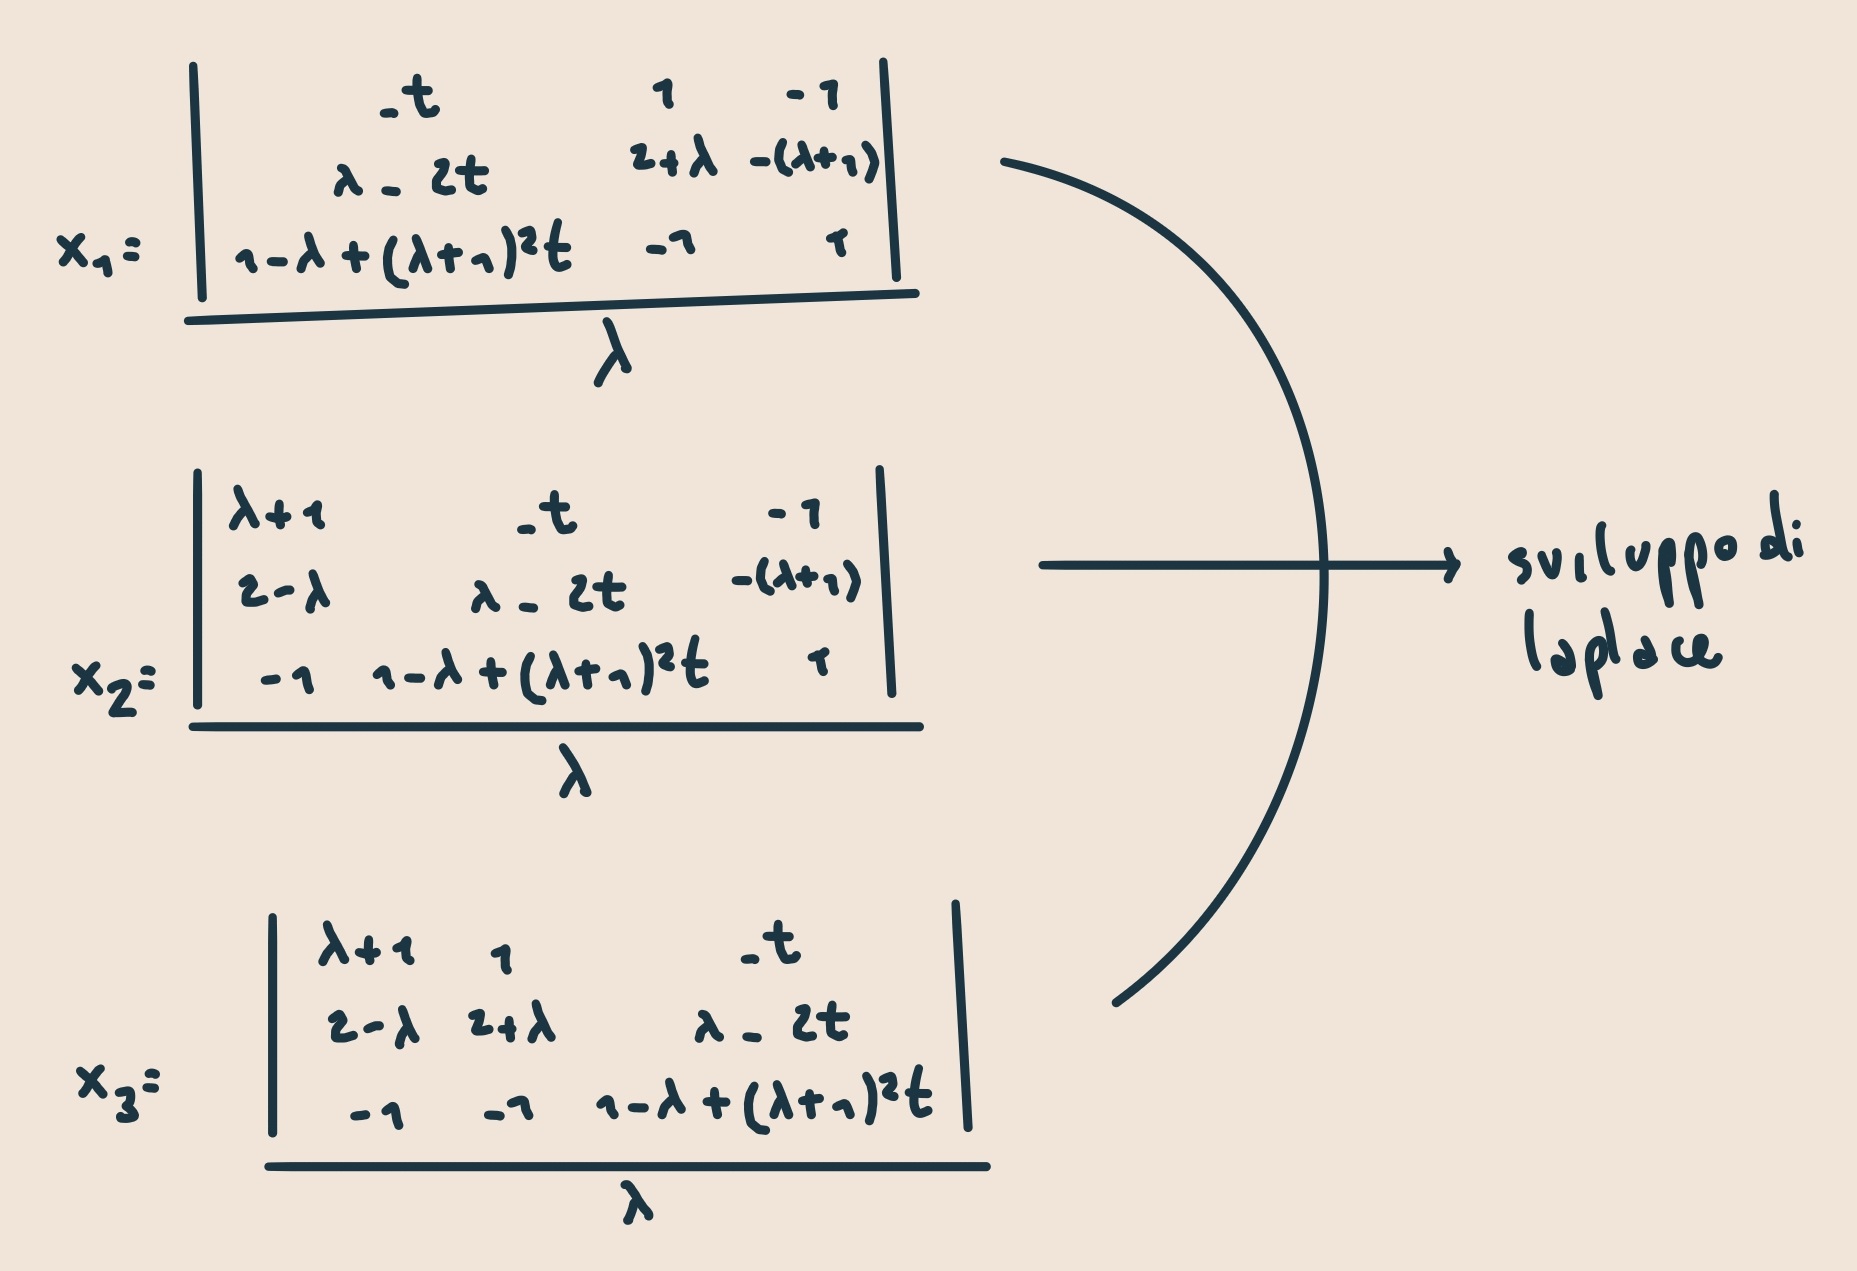 -t 1 -1
λ - 2t 2+λ -(λ+1)
x₁= 1-λ+(λ+1)²t -1 1
λ
λ+1 -t -1
2-λ λ - 2t -(λ+1)
x₂= -1 1-λ+(λ+1)²t 1
λ
λ+1 1 -t
2-λ 2+λ λ - 2t
x₃= -1 -1 1-λ+(λ+1)²t
λ
sviluppo di
laplace